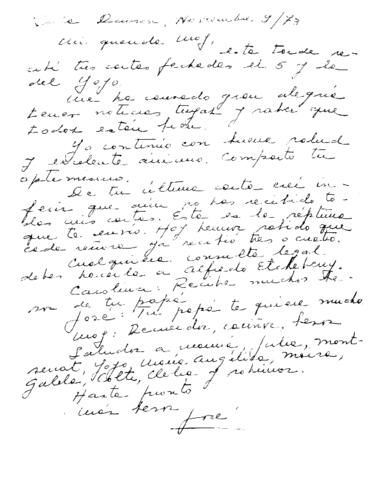 Isla Dawson, Noviembre 9/73
Mi querida Moy,
esta tarde re-
cibí tus cartas fechadas el 5 y la
del Yoyo.
Me ha causado gran alegría
tener noticias tuyas y saber que
todos están bien.
Yo continúo con buena salud
y excelente ánimo. Comparto tu
optimismo.
De tu última carta creí in-
ferir que aún no has recibido to-
das mis cartas. Esta es la séptima
que te envío. Hoy hemos sabido que
cada señora ya recibió tres o cuatro.
Cualquiera consulta legal
debes hacerla a Alfredo Etcheberry.
Carolina: Recibe muchos be-
sos de tu papá
José: Tu papá te quiere mucho
Moy: Recuerdos, cariños, besos
Saludos a mamá, Julia, Mont-
serrat, Yoyo, María Angélica, Moira,
Galela, Colte, Clelia y sobrinos.
Hasta pronto
más besos
José